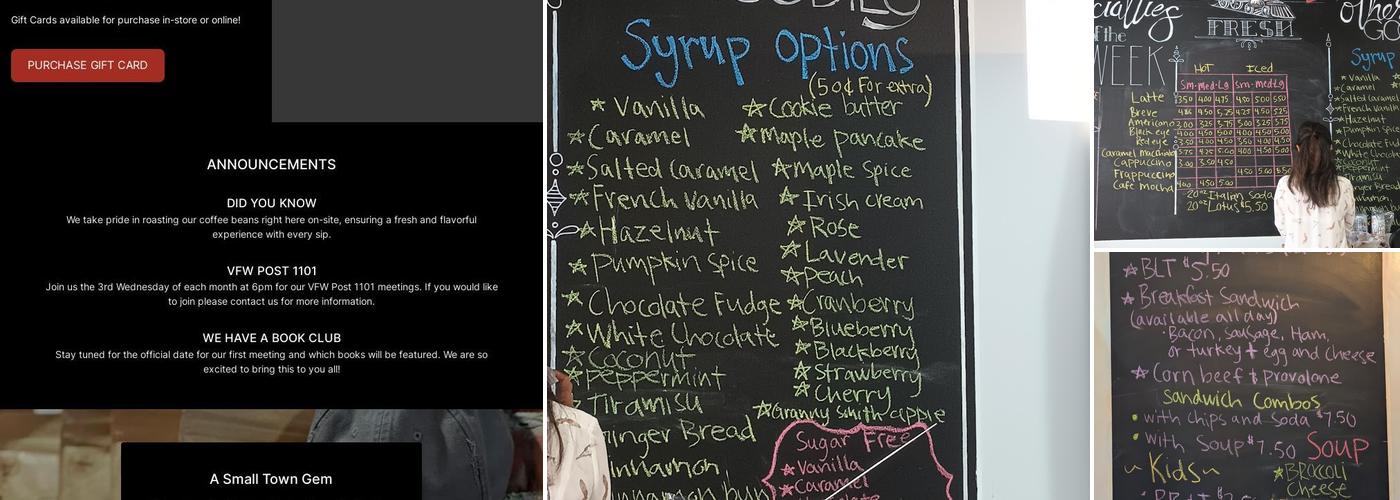 Gift Cards available for purchase in-store or online!
PURCHASE GIFT CARD
ANNOUNCEMENTS
DID YOU KNOW
We take pride in roasting our coffee beans right here on-site, ensuring a fresh and flavorful
experience with every sip.
VFW POST 1101
Join us the 3rd Wednesday of each month at 6pm for our VFW Post 1101 meetings. If you would like
to join please contact us for more information.
WE HAVE A BOOK CLUB
Stay tuned for the official date for our first meeting and which books will be featured. We are so
excited to bring this to you all!
A Small Town Gem
Syrup Options
(50¢ For extra)
Vanilla
Caramel
Salted Caramel
French Vanilla
Hazelnut
Pumpkin Spice
Chocolate Fudge
White Chocolate
Coconut
Peppermint
Tiramisu
Ginger Bread
innamon
innamon bun
Cookie butter
Maple pancake
Maple Spice
Irish cream
Rose
Lavender
Peach
Cranberry
Blueberry
Blackberry
Strawberry
Cherry
Granny Smith apple
Sugar Free
Vanilla
Caramel
of the
WEEK
FRESH
Hot Iced
Sm. med. Lg sm. med. Lg
Latte 3.50 4.00 4.75 4.50 5.00 5.50
Breve
Americano
Black eye
Red eye
Caramel Macchiato
Cappuccino 3.00 3.50 4.50
Frappuccino
Cafe Mocha
20oz Italian Soda
20oz Lotus $5.50
Syrup
Vanilla
Caramel
Salted Caramel
French Vanilla
Hazelnut
Pumpkin Spice
Chocolate Fud
White Choco
Coconut
Peppermint
BLT $5.50
Breakfast Sandwich
(available all day)
Bacon, Sausage, Ham,
or turkey + egg and cheese
Corn beef & Provolone
Sandwich Combos
with chips and soda $7.50
with Soup $7.50
Soup
~ Kids ~
Broccoli
Cheese